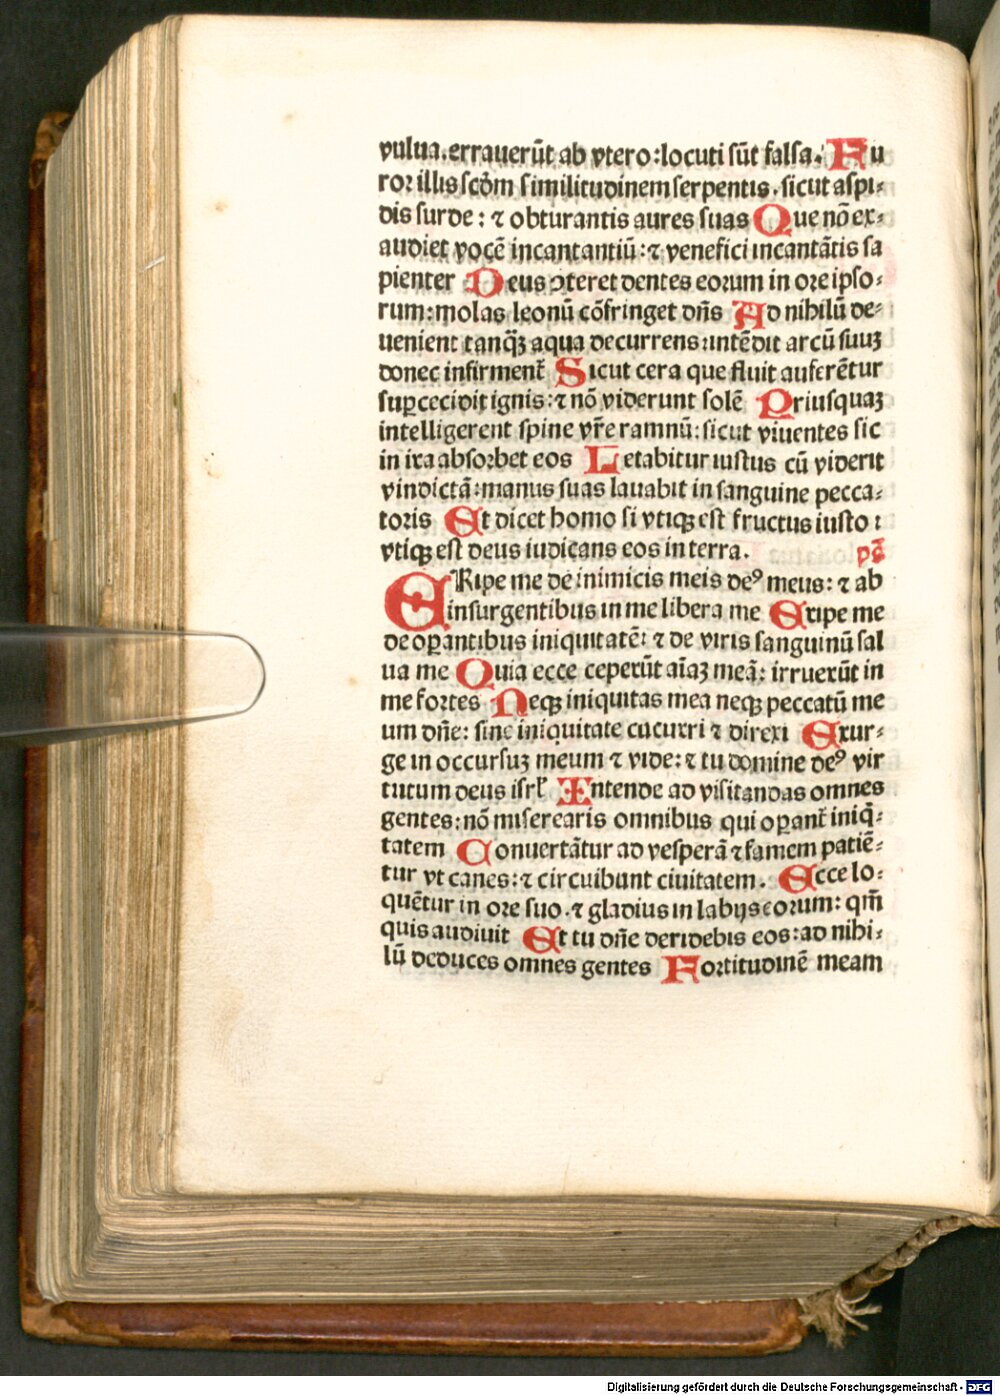 vulua.errauerūt ab vtero:locuti sūt falsa. Fu
ror illis scd̄m similitudinem serpentis.sicut aspi⸗
dis surde: ⁊ obturantis aures suas Que nō ex⸗
audiet vocē incantantiū:⁊ venefici incantātis sa
pienter Deus ↄteret dentes eorum in ore ipso⸗
rum:molas leonū cōfringet dn̄s Ad nihilū de⸗
uenient tanqȝ̄ aqua decurrens:intēdit arcū suuȝ
donec infirment̄ Sicut cera que fluit auferētur
suꝑcecidit ignis:⁊ nō viderunt solē Priusquaȝ
intelligerent spine vr̄e ramnū:sicut viuentes sic
in ira absorbet eos Letabitur iustus cū viderit
vindictā:manus suas lauabit in sanguine pecca⸗
toris Et dicet homo si vtiqȝ est fructus iusto:
vtiqȝ est deus iudicans eos in terra. pō
ERipe me de inimicis meis deꝰ meus: ⁊ ab
insurgentibus in me libera me Eripe me
de oꝑantibus iniquitatē: ⁊ de viris sanguinū sal
ua me Quia ecce ceperūt aīaȝ meā: irruerūt in
me fortes Neqȝ iniquitas mea neqȝ peccatū me
um dn̄e: sine iniquitate cucurri ⁊ direxi Exur⸗
ge in occursuȝ meum ⁊ vide: ⁊ tu domine deꝰ vir
tutum deus isrl̄ Intende ad visitandas omnes
gentes:nō miserearis omnibus qui oꝑant̄ iniq̄⸗
tatem Conuertātur ad vesperā ⁊ famem patiē⸗
tur vt canes:⁊ circuibunt ciuitatem. Ecce lo⸗
quētur in ore suo.⁊ gladius in labijs eorum: qm̄
quis audiuit Et tu dn̄e deridebis eos:ad nihi⸗
lū deduces omnes gentes Fortitudinē meam
Digitalisierung gefördert durch die Deutsche Forschungsgemeinschaft - DFG